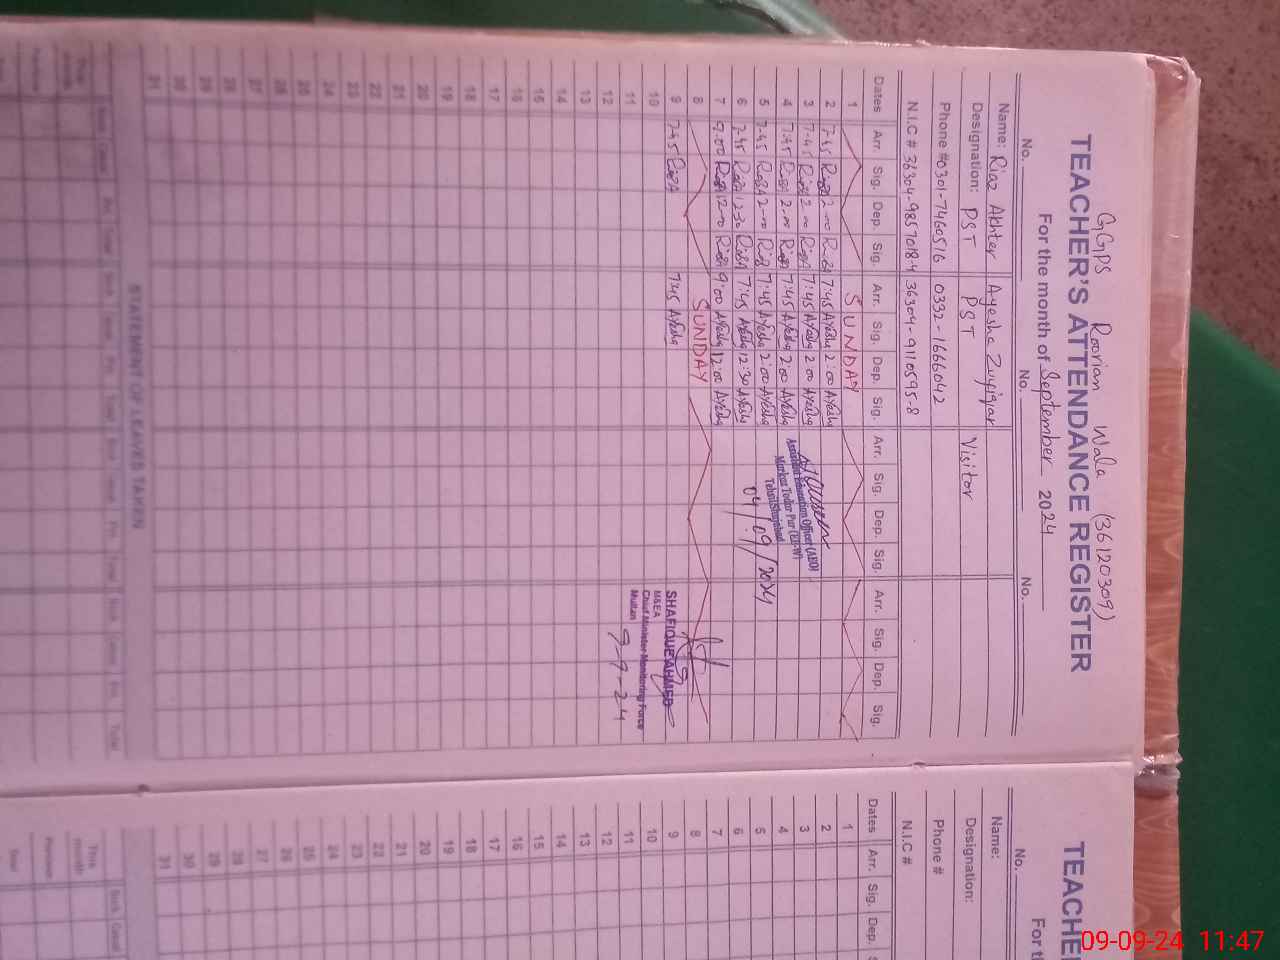 GGPS Roorian Wala (36120309)
TEACHER'S ATTENDANCE REGISTER
For the month of September 2024
No. No. No.
Name: Riaz Akhter Ayesha Zulfiqar
Designation: PST PST Visitor
Phone #0301-7460516 0332-1666042
N.I.C # 36304-9857018-4 36304-9110595-8
Dates Arr. Sig. Dep. Sig. Arr. Sig. Dep. Sig. Arr. Sig. Dep. Sig. Arr. Sig. Dep. Sig.
1 SUNDAY
2 7-45 2-00 7:45 Ayesha 2:00 Ayesha
3 7-45 2-00 7:45 Ayesha 2:00 Ayesha
4 7:45 2-00 7:45 Ayesha 2:00 Ayesha
5 7-45 2-00 7:45 Ayesha 2:00 Ayesha
6 7-45 12-30 7:45 Ayesha 12:30 Ayesha
7 9-00 12-00 9:00 Ayesha 12:00 Ayesha
8 SUNDAY
9 7-45 7:45 Ayesha
10
11
12
13
14
15
16
17
18
19
20
21
22
23
24
25
26
27
28
29
30
31
Assistant Education Officer (AEO)
Markaz Todar Pur (EE-W)
Tehsil Shujabad
04/09/2024
SHAFIQUE AHMED
M&EA
Chief Minister Monitoring Force
Multan
9-9-24
STATEMENT OF LEAVES TAKEN
This month
TEACHE
For t
No.
Name:
Designation:
Phone #
N.I.C #
Dates Arr. Sig. Dep.
1
2
3
4
5
6
7
8
9
10
11
12
13
14
15
16
17
18
19
20
21
22
23
24
25
26
27
28
29
30
31
This month
09-09-24 11:47